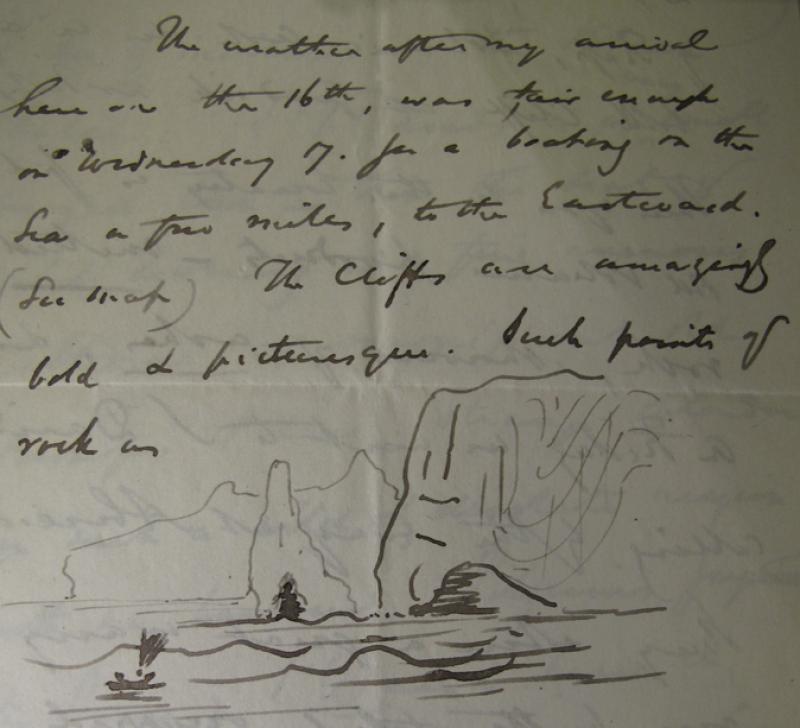 The weather after my arrival
here on the 16th, was fair enough
on Wednesday 7. for a boating on the
Sea a few miles, to the Eastward.
(See map) The Cliffs are amazingly
bold & picturesque. Such points of
rock as